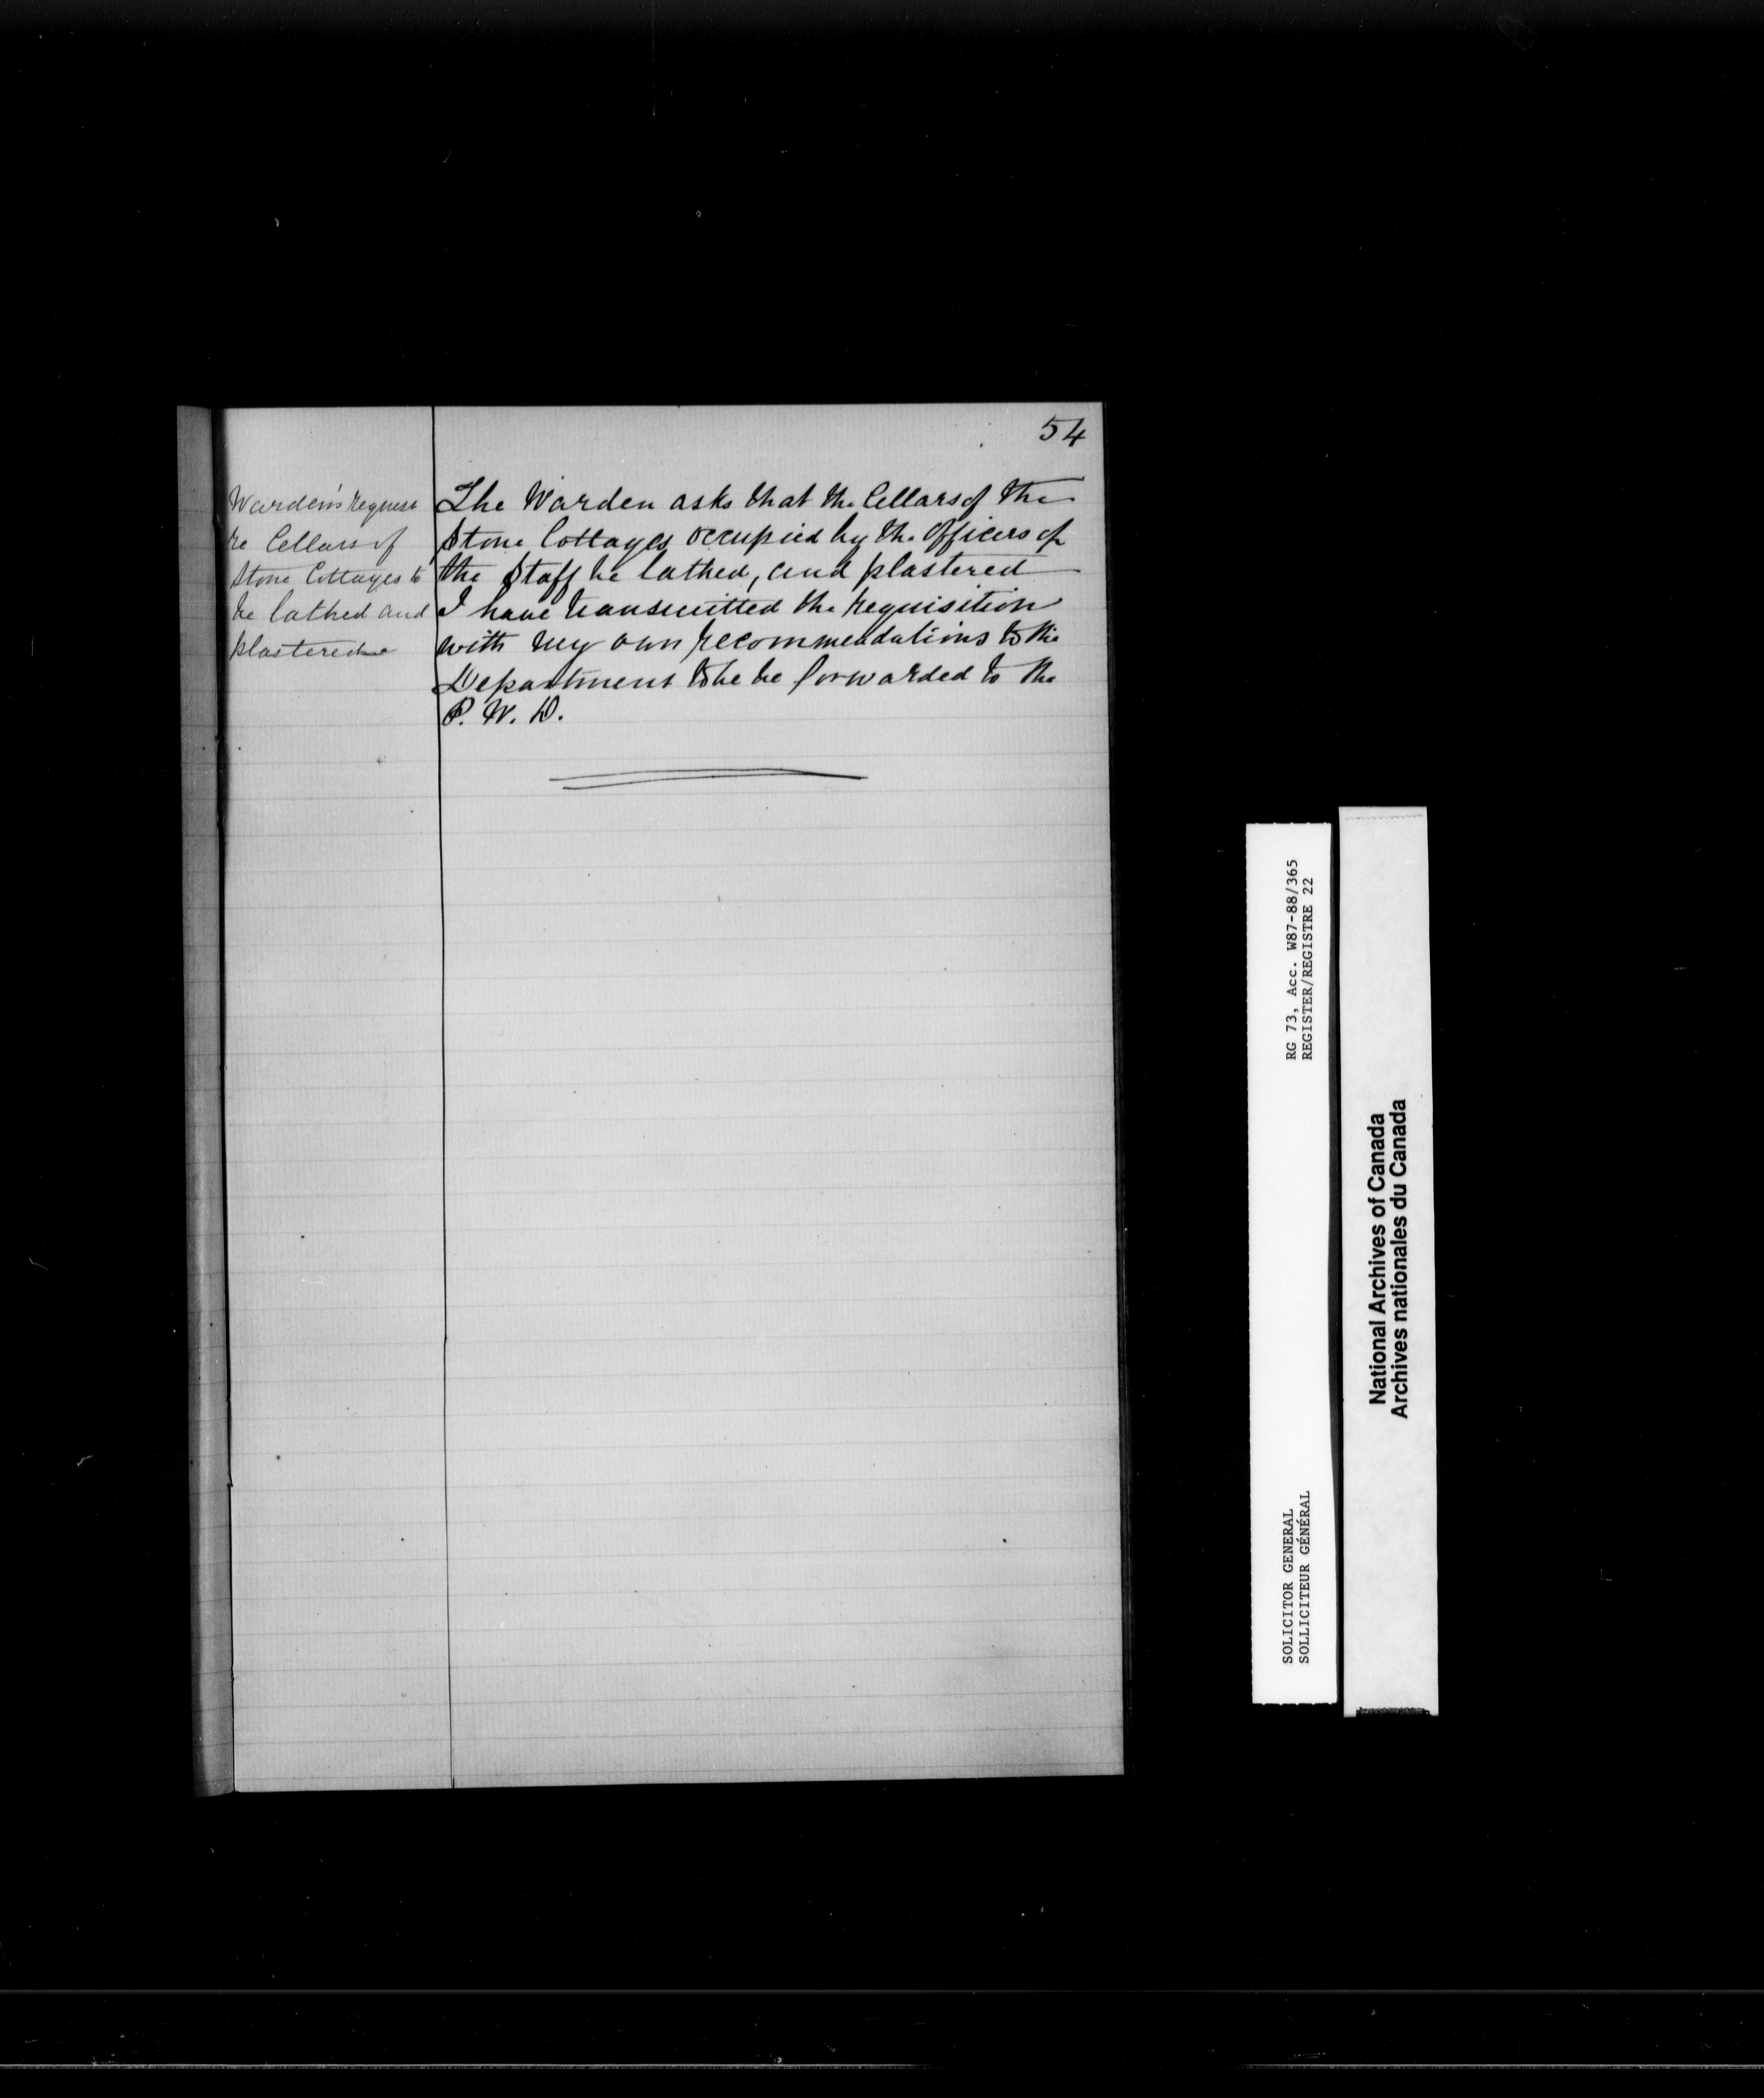 54
Warden's request
re Cellars of
Stone Cottages to
be lathed and
plastered
The Warden asks that the Cellars of the
Stone Cottages occupied by the Officers of
the Staff be lathed, and plastered
I have transmitted the requisition
with my own recommendations to the
Department to be be forwarded to the
P. W. D.
RG 73, Acc. W87-88/365
REGISTER/REGISTRE 22
SOLICITOR GENERAL
SOLLICITEUR GÉNÉRAL
National Archives of Canada
Archives nationales du Canada